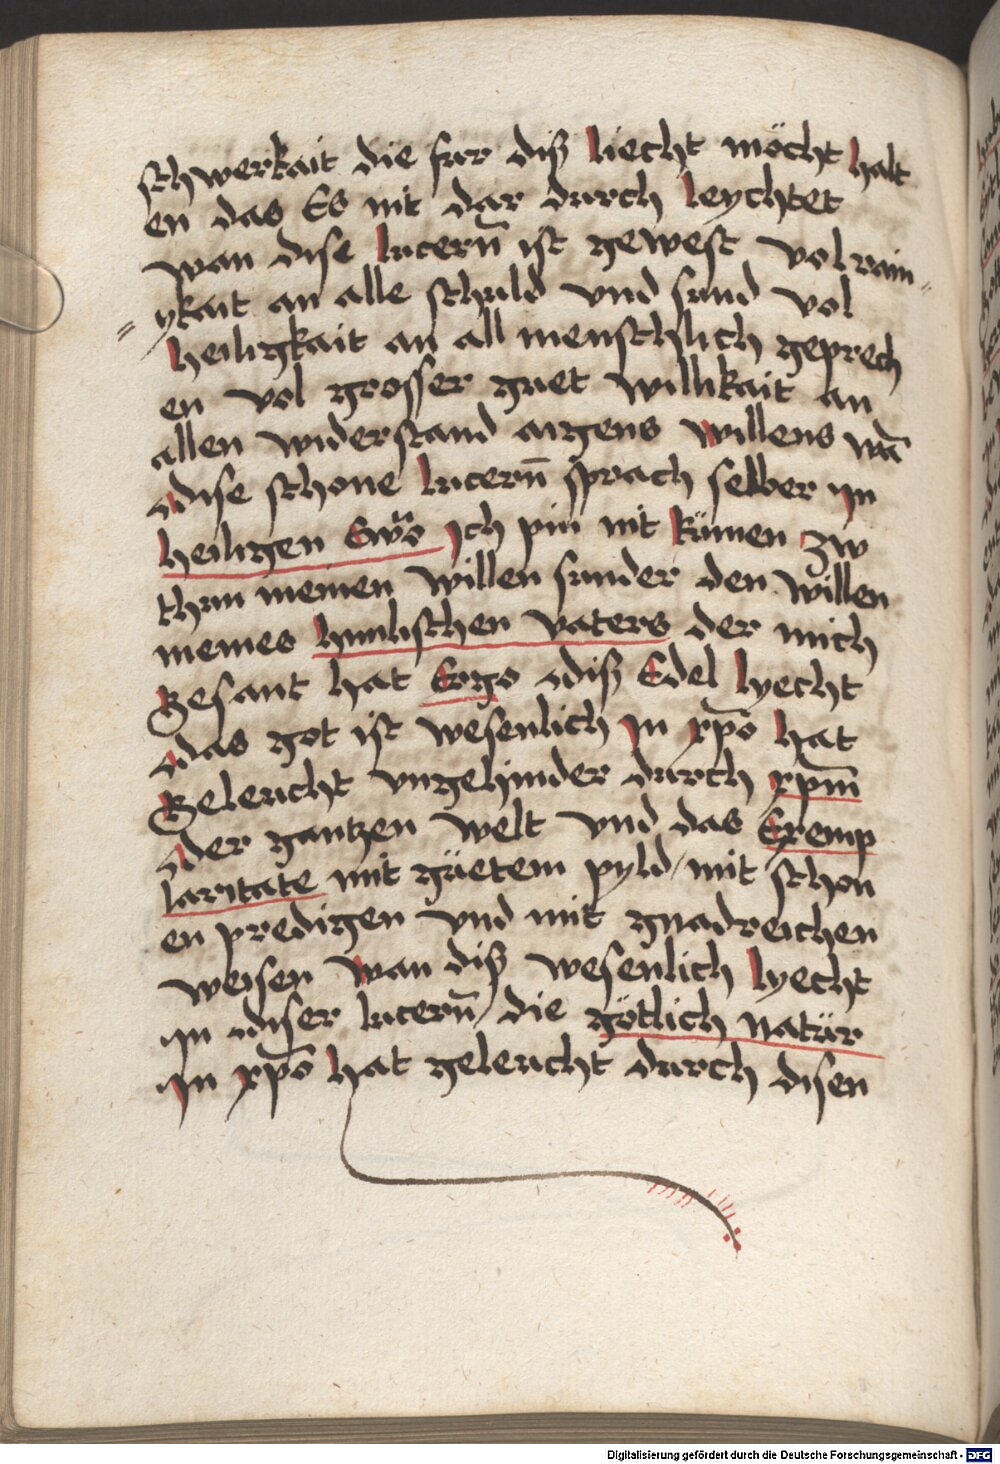 schwerkait die fur diß liecht möcht halt
en das Es nit dar durch leychtet
wan dise lucern̄ ist gewest vol rain„
„ykait an alle schuld vnd sund vol
heiligkait an all menschlich geprech
en vol grosser guet willikait an
allen widerstand aigens willens wā
dise schone lucern̄ sprach selber In
heiligen Ich pin nit kümen zw
thun meinen willen sunder den willen
meines himlischen vaters der mich
Gesant hat Ergo diß Edel lyecht
das got ist wesenlich In xp̄o hat
Geleucht vngehinder durch xp̄m
der gantzen welt vnd das Exemp
laritate mit güetem pyld / mit schon
en predigen vnd mit gnadreichen
weisen wan diß wesenlich lyecht
In diser lucern̄ / die götlich natür
In xp̄o hat geleucht durch disen
Digitalisierung gefördert durch die Deutsche Forschungsgemeinschaft - DFG